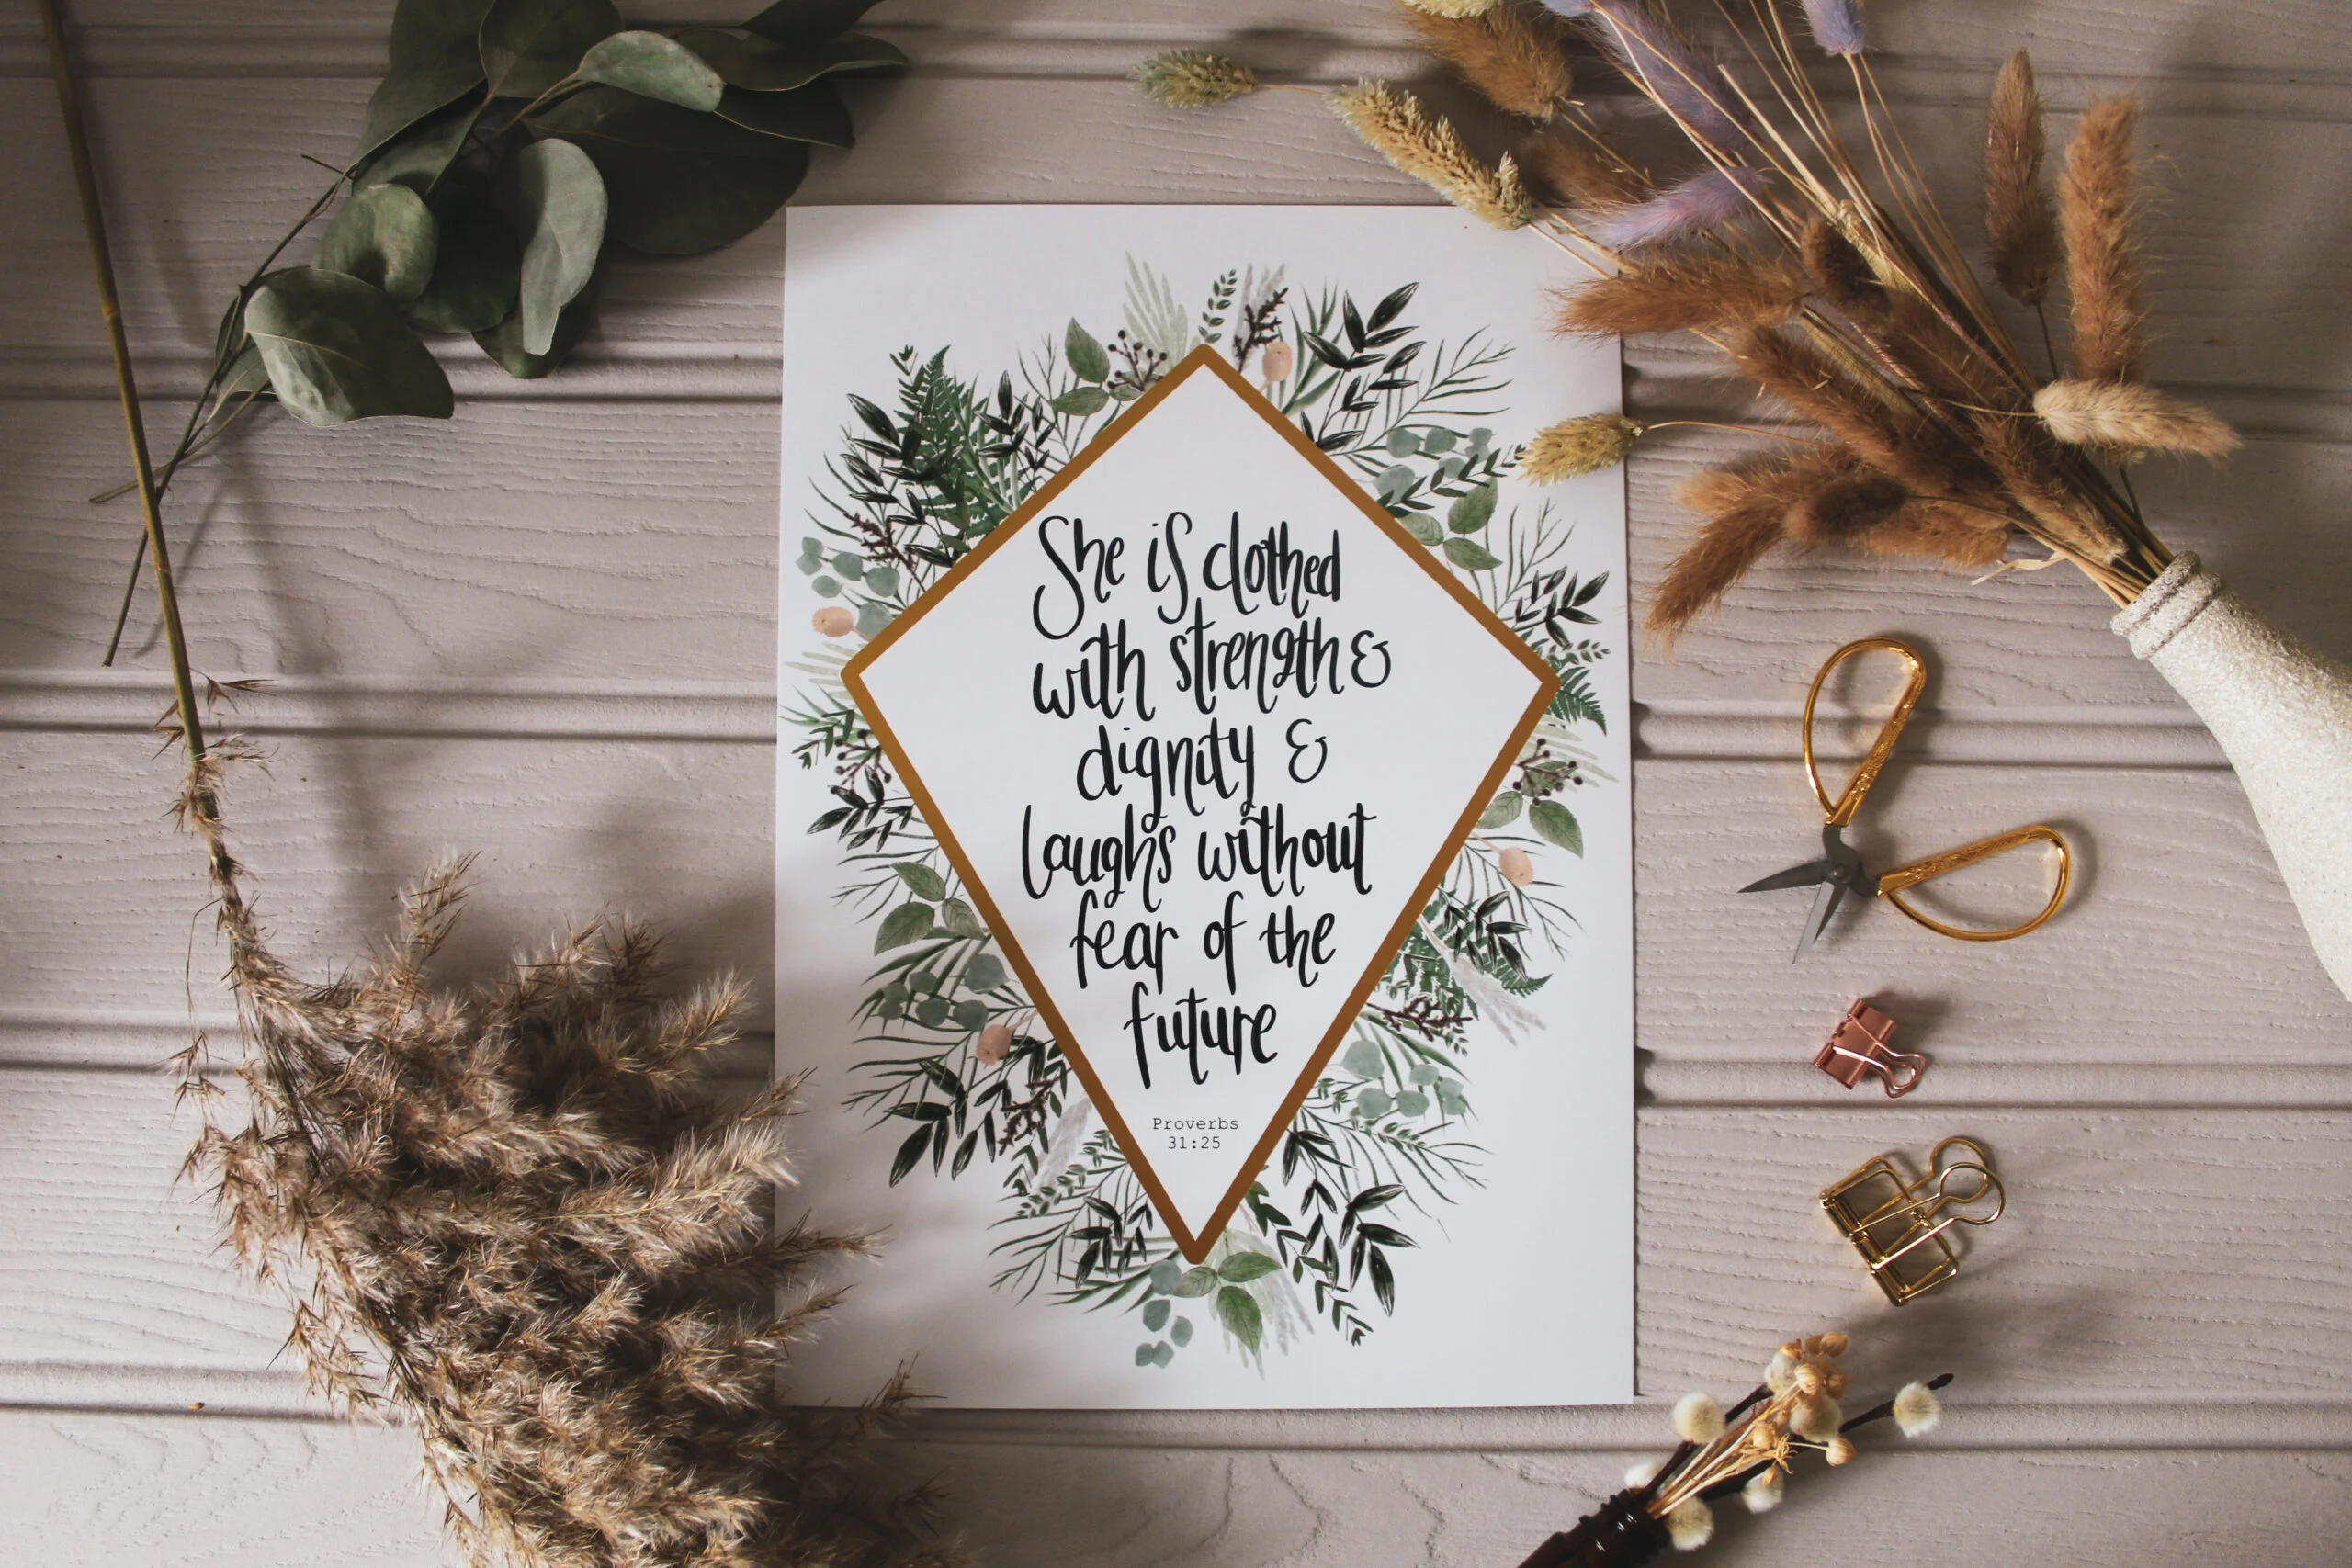 She is clothed
with strength &
dignity &
laughs without
fear of the
future
Proverbs
31:25